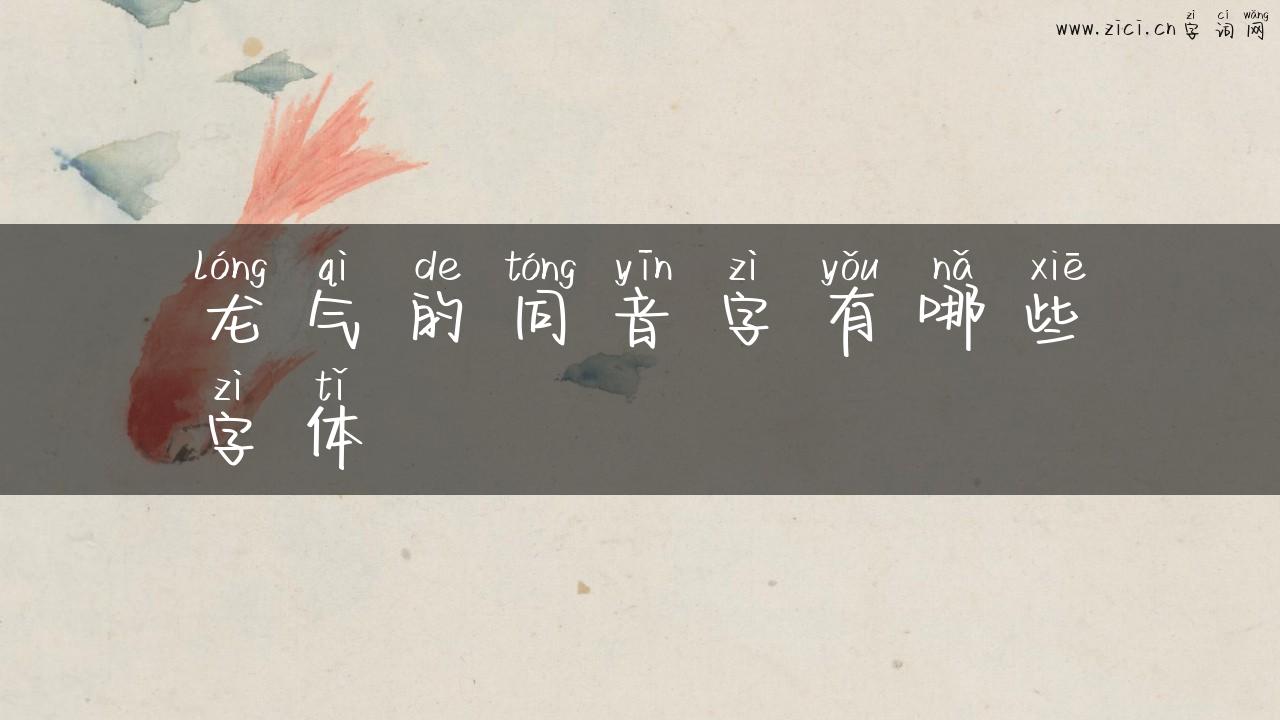 zì cí wǎng
www.zici.cn 字 词 网
lóng qì de tóng yīn zì yǒu nǎ xiē
龙 气 的 同 音 字 有 哪 些
zì tǐ
字 体